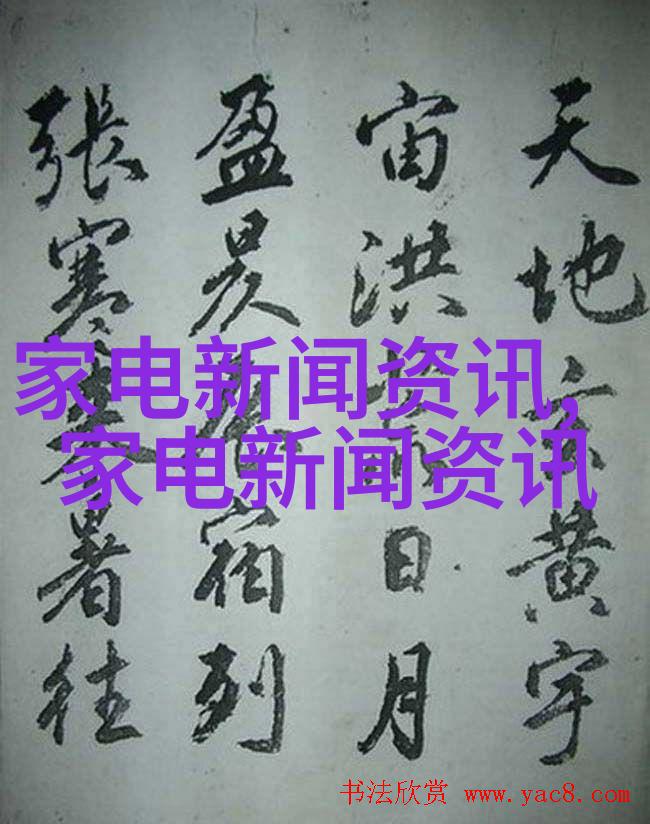 天地玄黄宇
宙洪日月
盈昃宿列
張寒来暑往
家电新闻资讯,
家电新闻资讯
书法欣赏 www.yac8.com